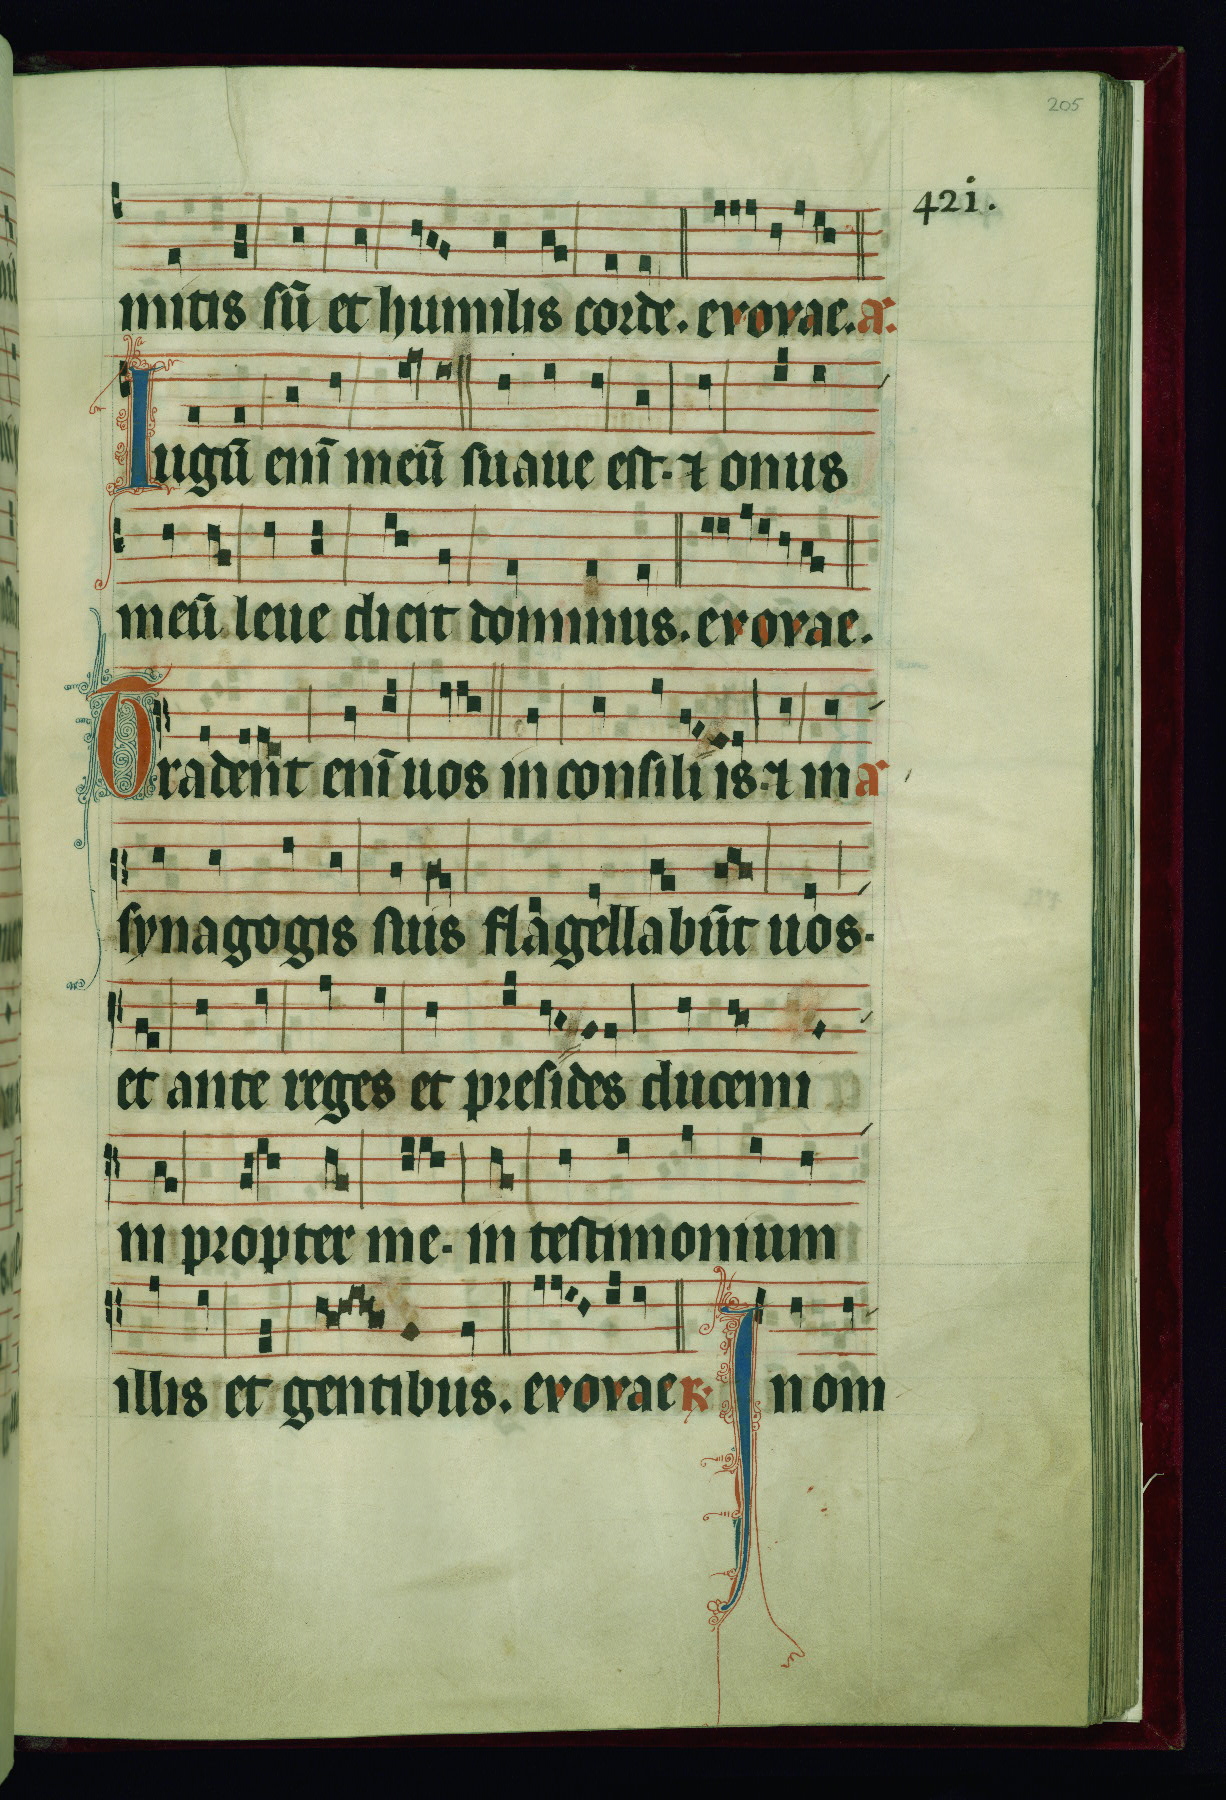 205
42i.
mitis sū et humilis corde. evovae. a.
Iugū eni̅ meū suaue est. ⁊ onus
meū leue dicit dominus. evovae.
Tradent eni̅ uos in consiliis. ⁊ in a
synagogis suis flagellabūt uos.
et ante reges et presides ducemi
ni propter me. in testimonium
illis et gentibus. evovae ℟. In om